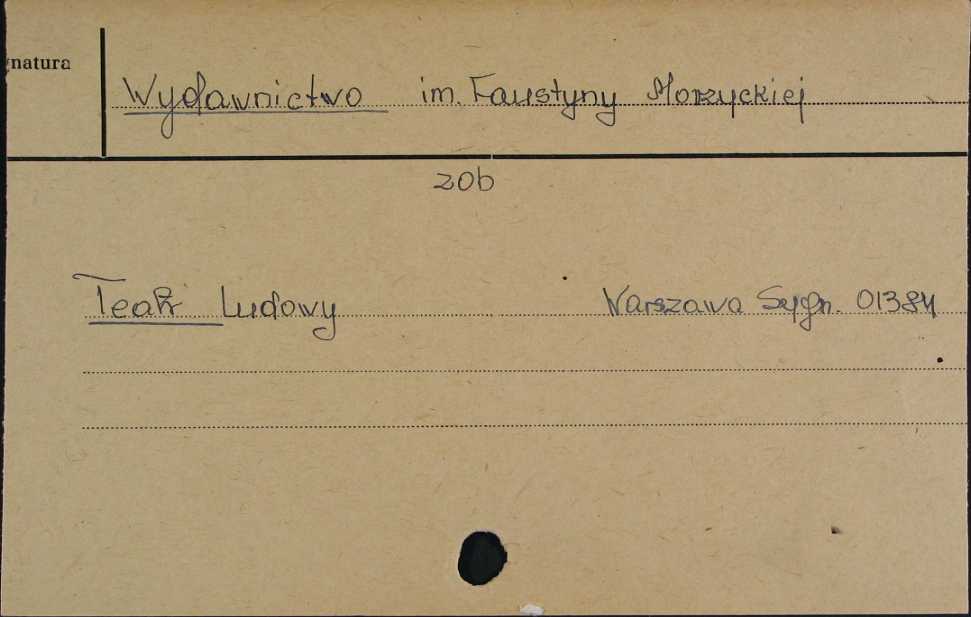 gnatura
Wydawnictwo im. Faustyny Morzyckiej
zob
Teatr Ludowy Warszawa Sygn. 01384